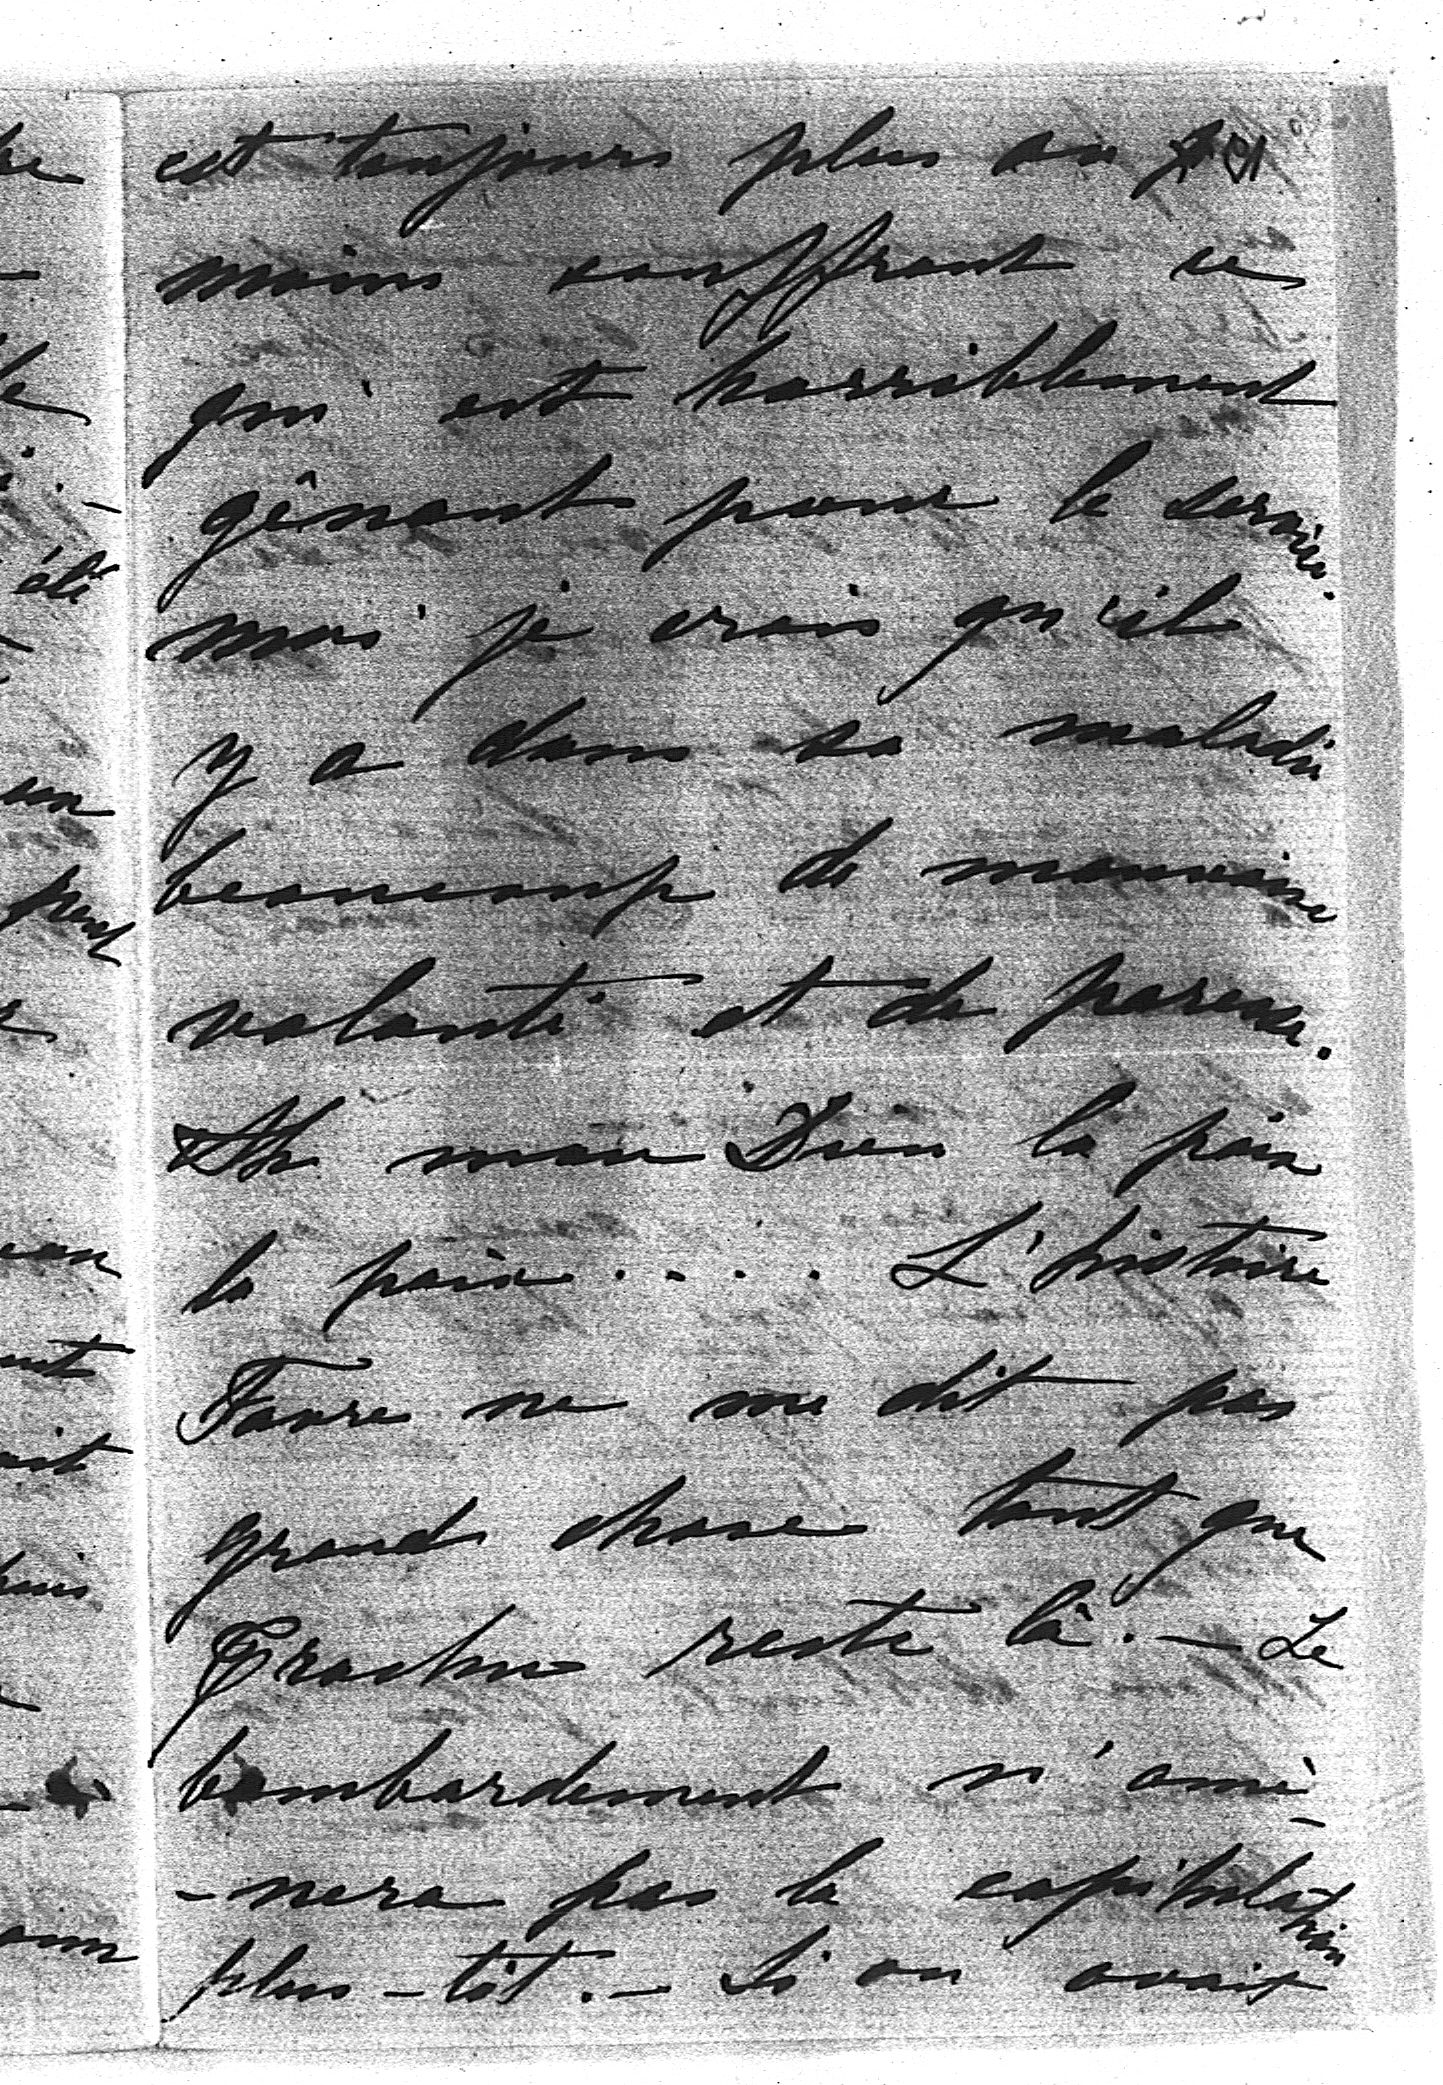 est toujours plus ou
moins souffrant ce
qui est horriblement
gênant pour le service.
mais je crois qu'il
y a dans sa maladie
beaucoup de mauvaise
volonté et de paresse.
Ah mon Dieu la paix
la paix . . . . L'histoire
Favre ne me dit pas
grand chose tant que
Trochu reste là. — Le
bombardement n'amè-
-nera pas la capitulation
plus-tôt. — Si on avait